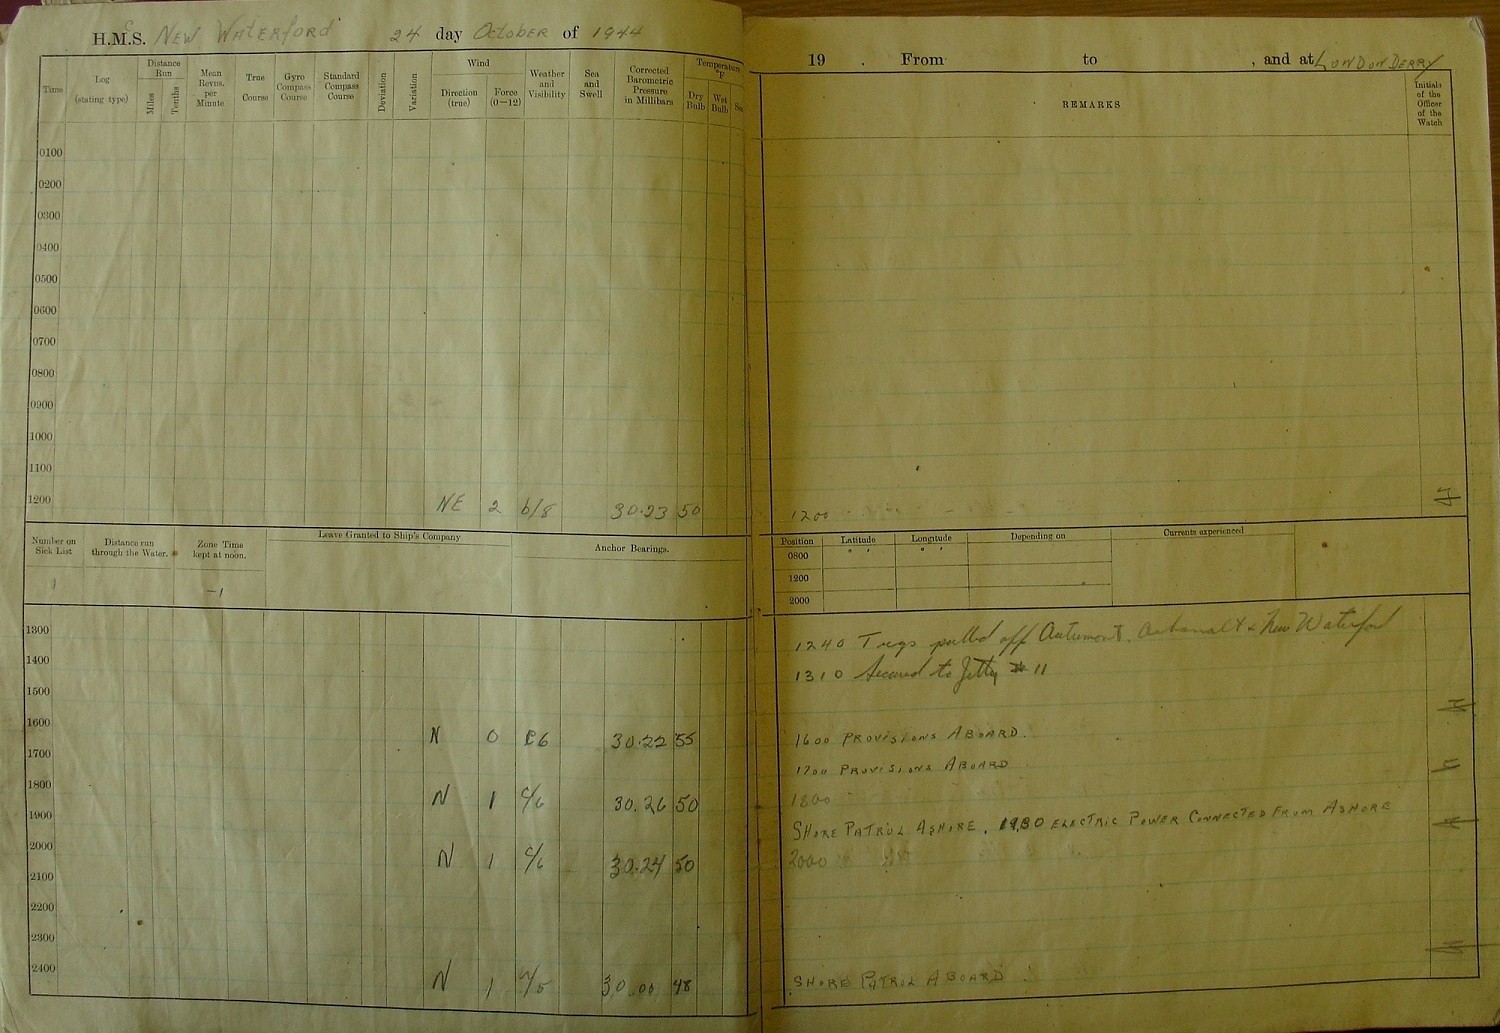 H.M.S. NEW WATERFORD 24 day OCTOBER of 1944
Time
Log (stating type)
Distance Run
Miles
Tenths
Mean Revns. per Minute
True Course
Gyro Compass Course
Standard Compass Course
Deviation
Variation
Wind
Direction (true)
Force (0—12)
Weather and Visibility
Sea and Swell
Corrected Barometric Pressure in Millibars
Temperature °F
Dry Bulb
Wet Bulb
0100
0200
0300
0400
0500
0600
0700
0800
0900
1000
1100
1200 NE 2 b/8 30.23 50
Number on Sick List
Distance run through the Water.
Zone Time kept at noon.
Leave Granted to Ship's Company
Anchor Bearings.
1 –1
1300
1400
1500
1600 N 0 C6 30.22 55
1700
1800 N 1 C/6 30.26 50
1900
2000 N 1 C/6 30.24 50
2100
2200
2300
2400 N 1 30.00 48
19 . From to , and at LONDONDERRY
REMARKS
Initials of the Officer of the Watch
1200
Position Latitude Longitude Depending on Currents experienced
0800 ° ′ ° ′
1200
2000
1240 Tugs pulled off & New Waterford
1310 Secured to Jetty # 11
1600 PROVISIONS ABOARD.
1700 PROVISIONS ABOARD
1800
SHORE PATROL ASHORE. 1930 ELECTRIC POWER CONNECTED FROM ASHORE
2000
SHORE PATROL ABOARD